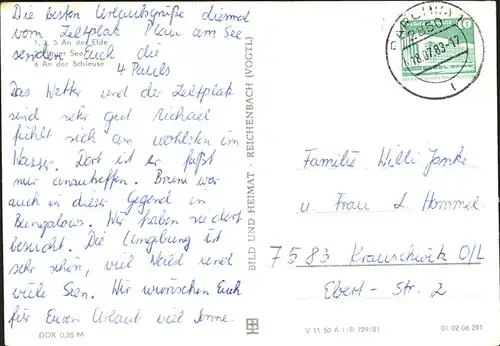 Die besten Urlaubsgrüße diesmal
vom Zeltplatz Plau am See
1, 3, 5 An der Elde
senden Euch die
Plauer See
4 An der Schleuse
4 Pauls
Das Wetter und der Zeltplatz
sind sehr gut Michael
fühlt sich am wohlsten im
Wasser. Dort ist er faßt
nur anzutreffen. Bruni war
auch in dieser Gegend in
Bungalows. Wir haben sie dort
besucht. Die Umgebung ist
sehr schön, viel Wald und
viele Seen. Wir wünschen Euch
für Euren Urlaub viel Sonne.
DDR 0,25 M
BILD UND HEIMAT · REICHENBACH (VOGTL)
PARCHIM 1
2850
18.07.83-17
10
Familie Willi Janke
u. Frau L. Hommel
7583 Krauschwitz O/L
Ebert-Str. 2
V 11 50 A 1/B 729/81
01 02 06 291